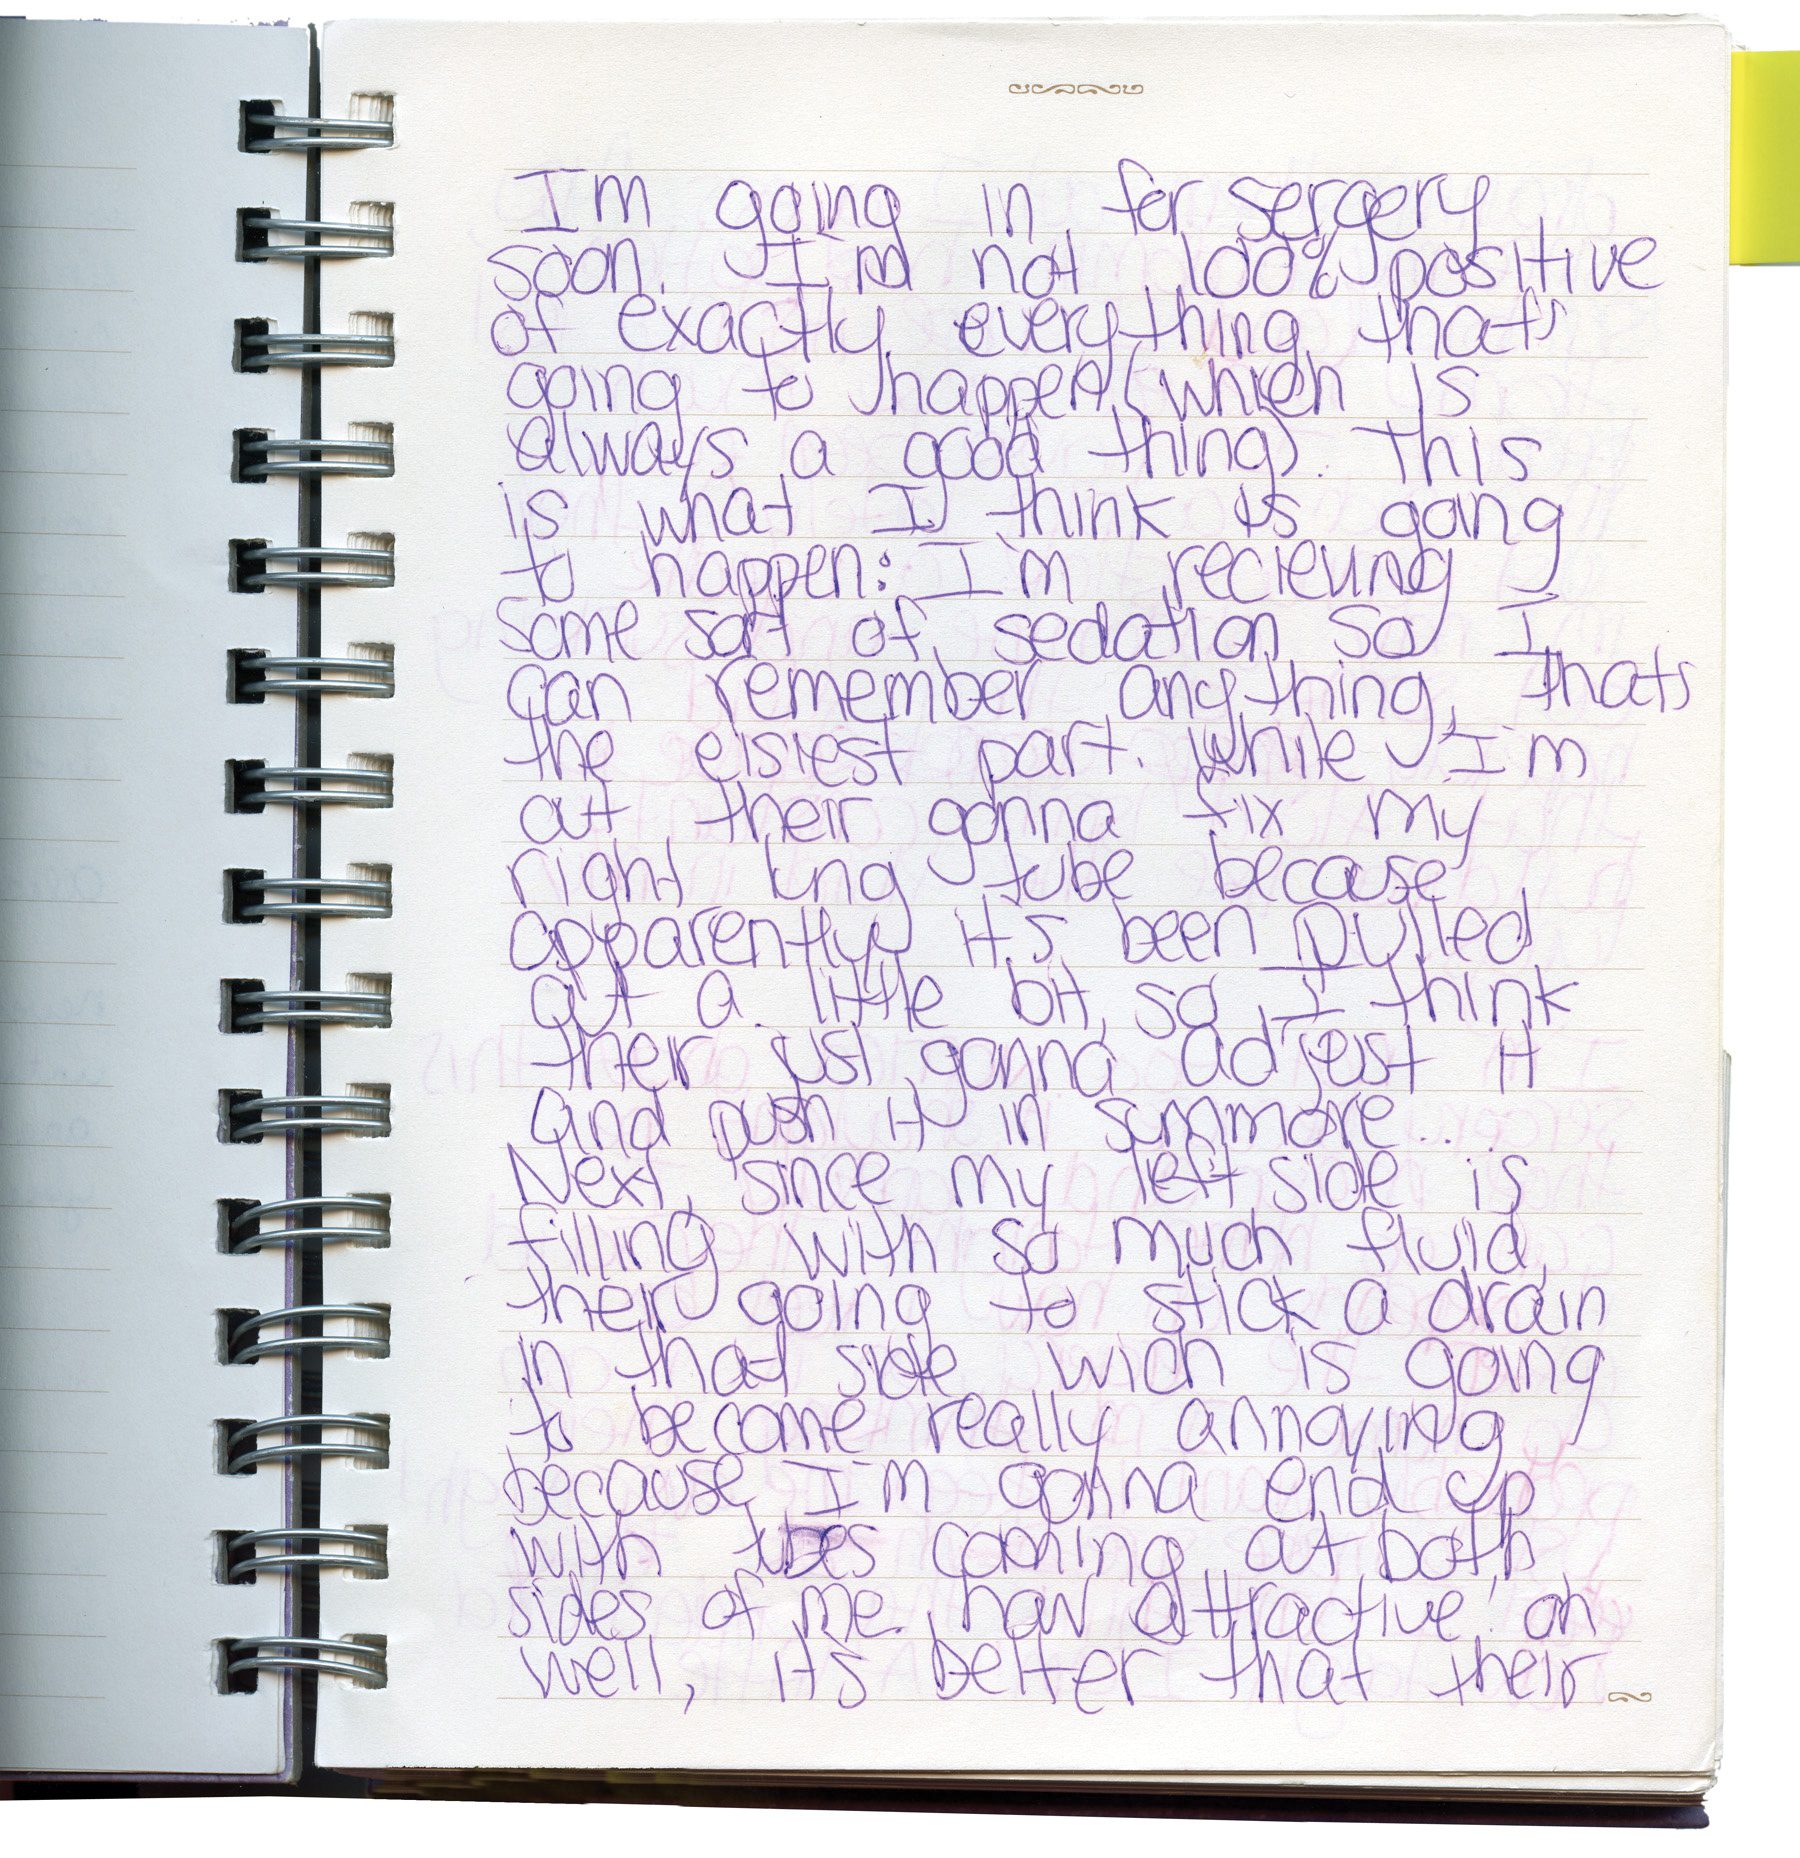 I'm going in for sergery
soon. I'm not 100% positive
of exactly everything that's
going to happen (which is
always a good thing). This
is what I think is going
to happen: I'm recieving
some sort of sedation so I
can remember anything, thats
the eisiest part. While I'm
out their gonna fix my
right lung tube because
apparently it's been pulled
out a little bit, so I think
their just gonna adjest it
and push it in summore..
Next, since my left side is
filling with so much fluid,
their going to stick a drain
in that side wich is going
to become really annoying
because I'm gonna end up
with tubes coming out both
sides of me. how attractive! oh
well, it's better that their